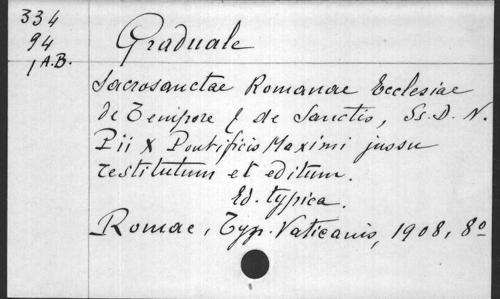 334
94
1 A.B.
Graduale
Sacrosanctae Romanae Ecclesiae
de Tempore & de Sanctis, Ss. D. N.
Pii X Pontificis Maximi jussu
restitutum et editum.
Ed. typica.
Romae, Typ. Vaticanis, 1908, 8º